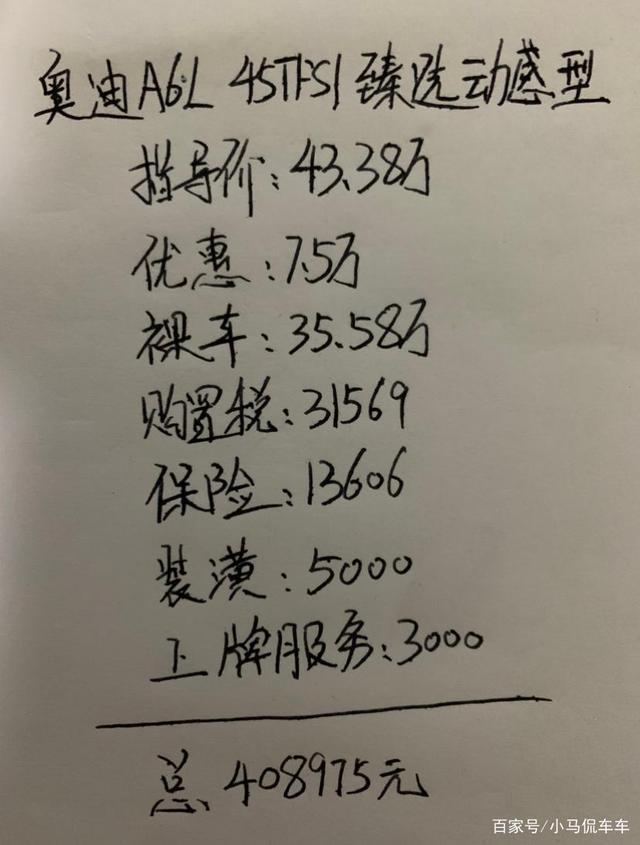 奥迪A6L 45TFSI臻选动感型
指导价:43.38万
优惠:7.5万
裸车:35.58万
购置税:31569
保险:13606
装潢:5000
上牌服务:3000
总 408975元
百家号/小马侃车车